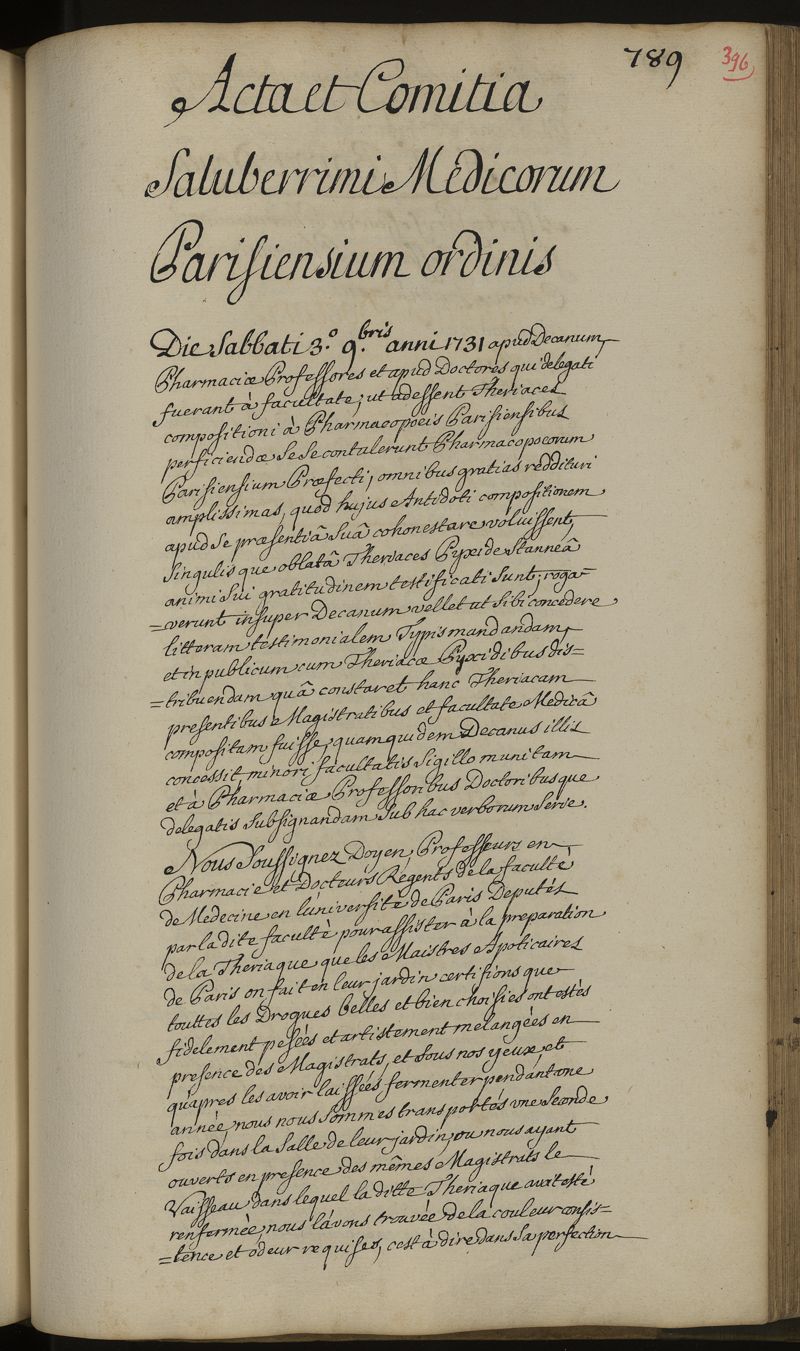 789
396
Acta et Comitia
Saluberrimi Medicorum
Parisiensium ordinis
Die Sabbati 3.° 9.bris anni 1731 apud Decanum,
Pharmaciæ Professores et apud Doctores qui delegati
fuerant à facultate, ut adessent Theriaces
compositioni à Pharmacopoeis Parisiensibus
perficiendæ se se contulerunt Pharmacopoeorum
Parisiensium Præfecti, omnibus gratias reddituri
amplissimas, quod hujus Antidoti compositionem
apud se præsentiâ suâ cohonestare voluissent,
singulisque oblatâ Theriaces Pyxide stanneâ
animi sui gratitudinem testificati sunt; roga=
=verunt insuper Decanum vellet ut sibi concedere
litteram testimonialem Typis mandandam,
et in publicum cum Theriacæ Pyxidibus dis=
=tribuendam quâ constaret hanc Theriacam
presentibus Magistratibus et facultate Medicâ
compositam fuisse, quam quidem Decanus illis
concessit minori facultatis sigillo munitam
et à Pharmaciæ Professoribus Doctoribusque
delegatis subsignandam sub hac verborum serie.
Nous Soussignez Doyen, Professeurs en
Pharmacie et Docteurs Regents de la faculté
de Medecine en l'université de Paris Deputés
par la dite faculté pour assister à la preparation
de la Theriaque que les Maistres Apoticaires
de Paris on fait en leur jardin certifions que
touttes les Drogues belles et bien choisies ont estés
fidelement pesées et artistement melangées en
presence des Magistrats, et sous nos yeux, et
qu'apres les avoir laissées fermenter pendant une
année, nous nous sommes transportés une seconde
fois dans la salle de leur jardin, ou nous ayant
ouverts en presence des mêmes Magistrats le
Vaisseau dans lequel la ditte Theriaque avat esté
renfermée, nous l'avons trouvée de la couleur consis=
=tence et odeur requises, cest à dire dans sa perfection